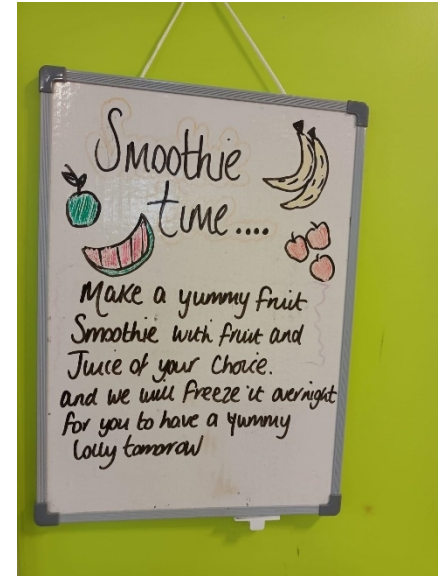 Smoothie
time....
Make a yummy fruit
Smoothie with fruit and
Juice of your Choice.
and we will Freeze it overnight
for you to have a yummy
lolly tomorrow